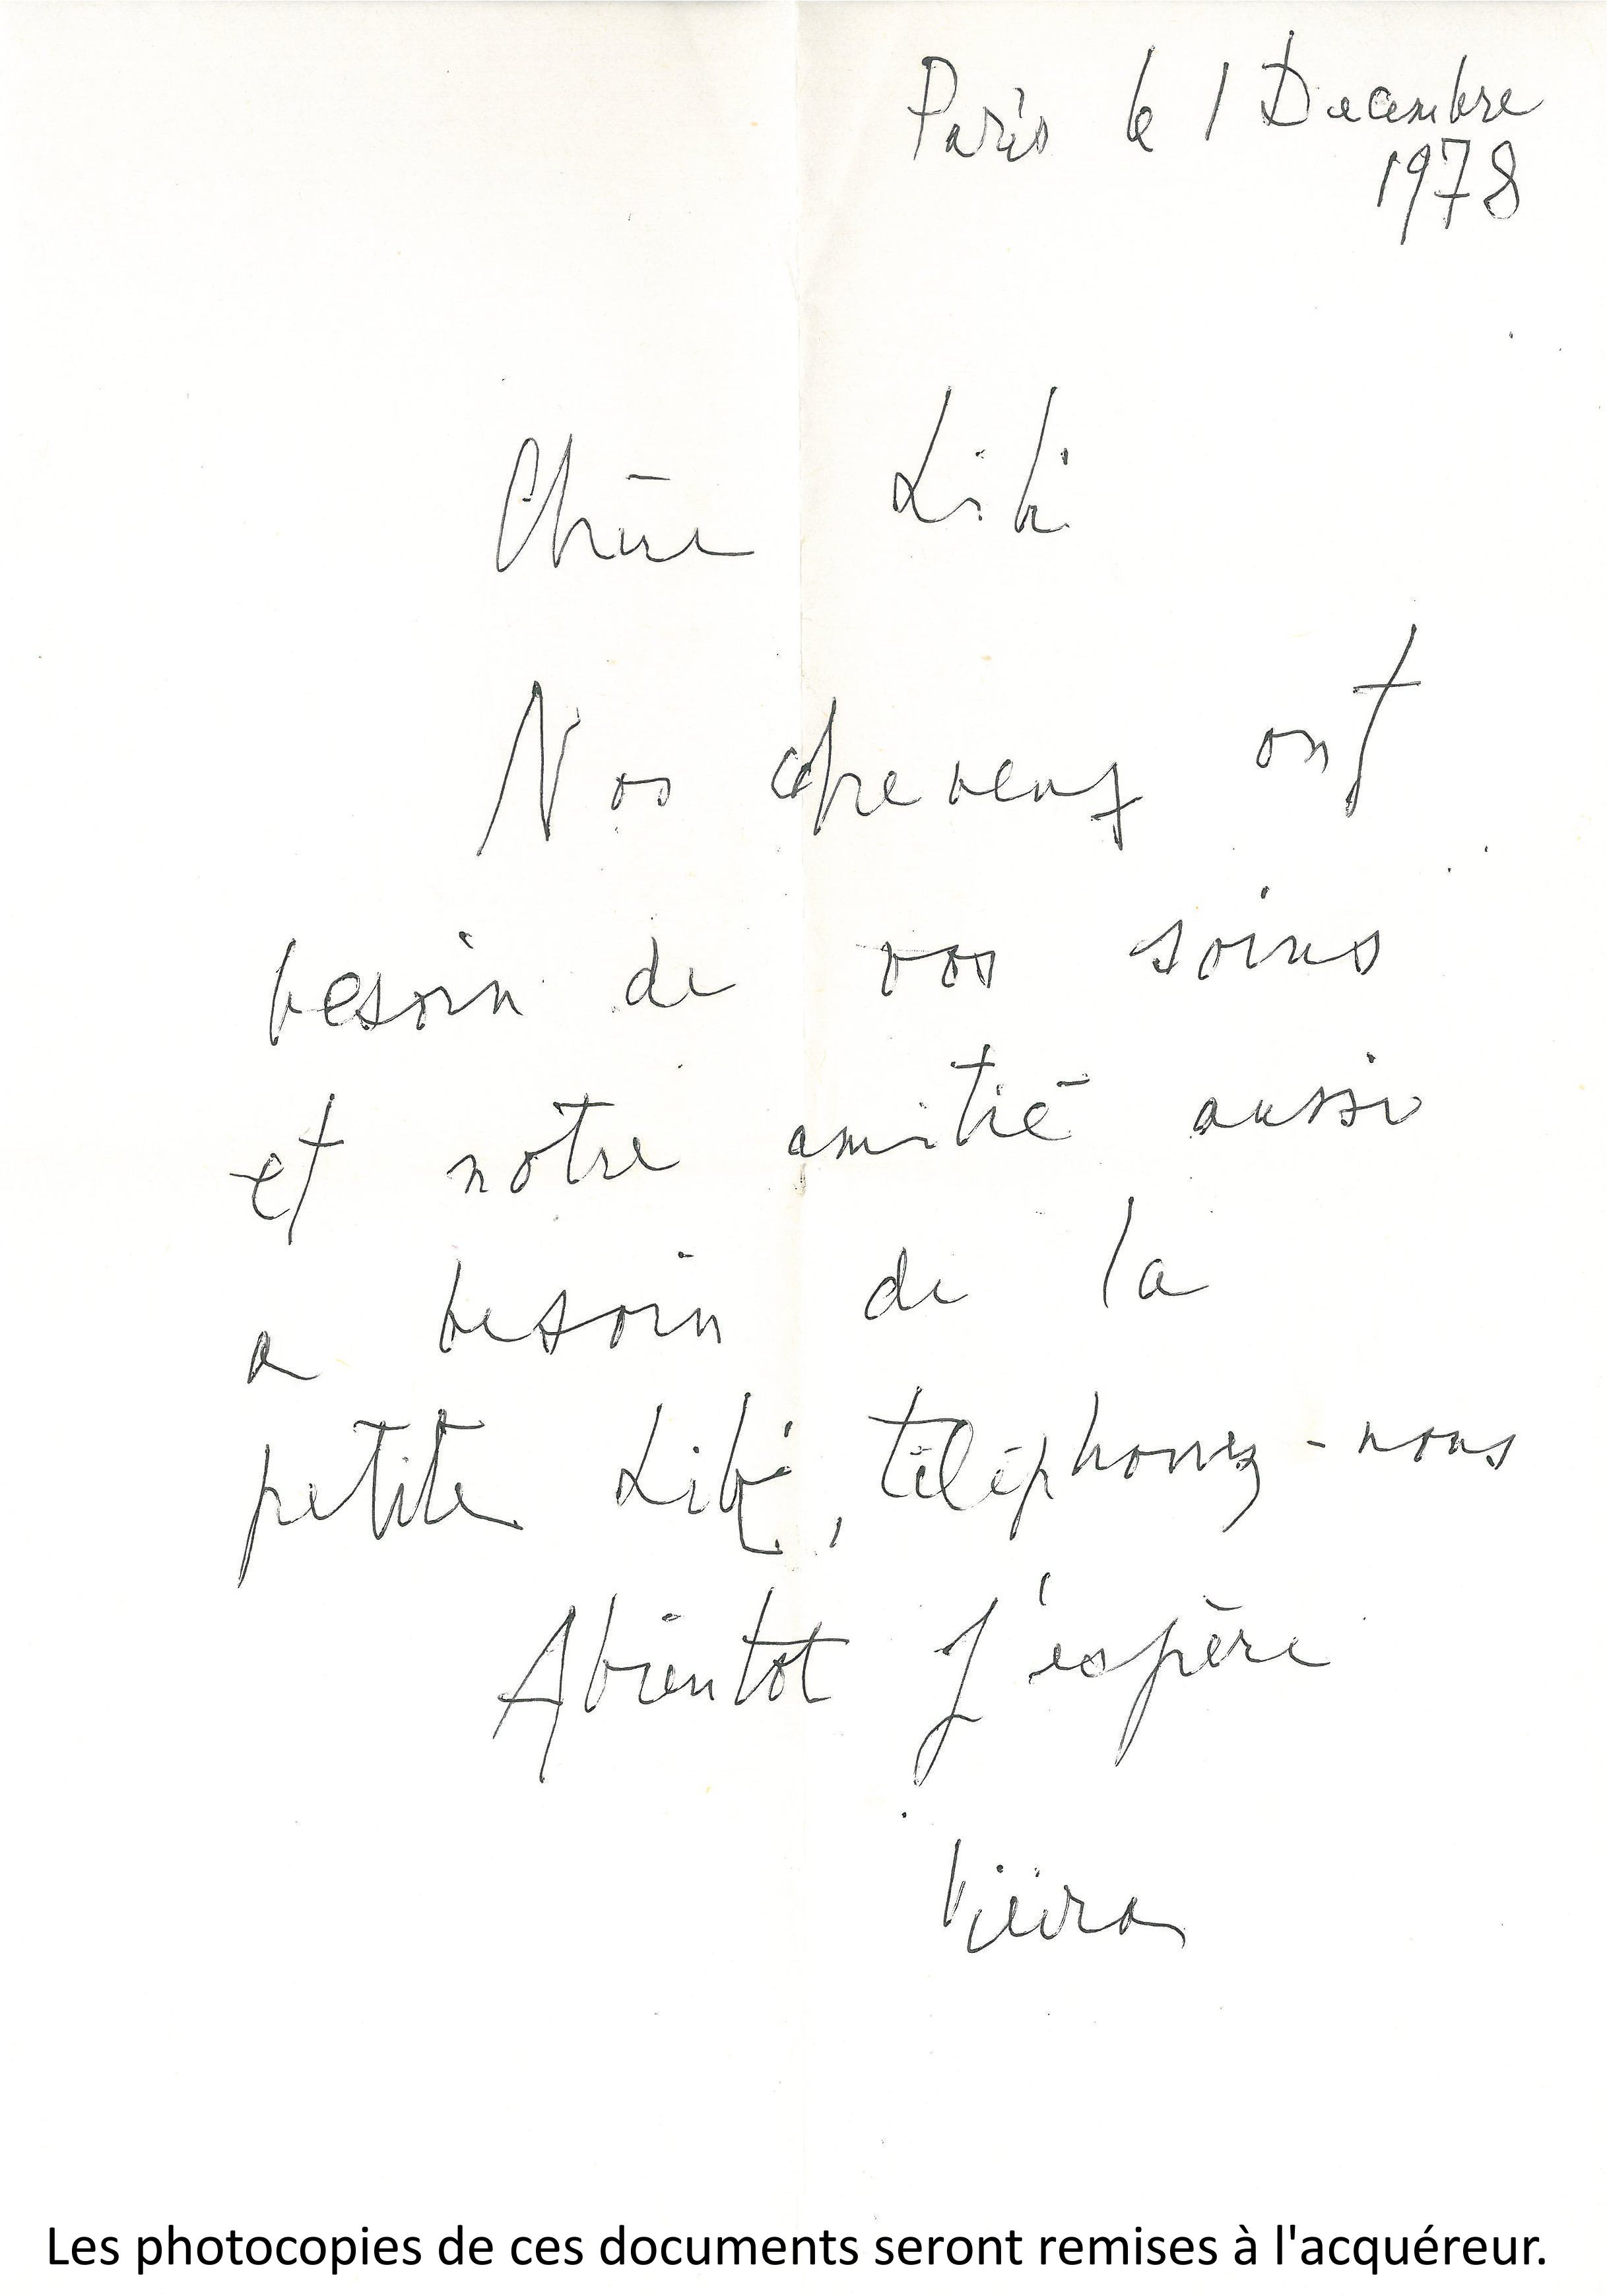 Paris le 1 Decembre
1978
Chère Libé
Nos cheveux ont
besoin de vos soins
et notre amitié aussi
a besoin de la
petite Libé, téléphonez-nous
Abientot J'espère
Vieira
Les photocopies de ces documents seront remises à l'acquéreur.